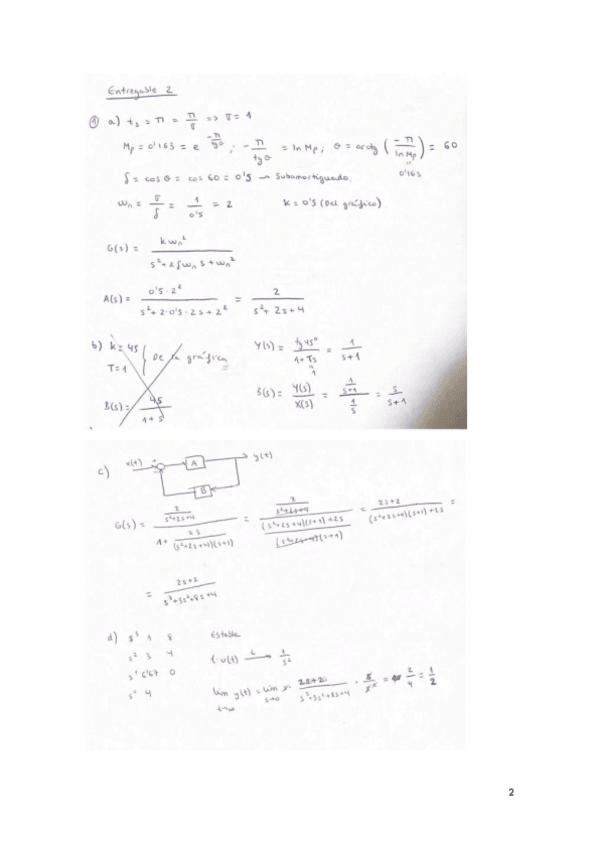 Entregable 2
① a) ts = π = π/σ => σ = 1
Mp = 0'163 = e^(-π/tgθ) ; -π/tgθ = ln Mp ; θ = arctg (-π/ln Mp) = 60
0'163
δ = cos θ = cos 60 = 0'5 → Subamortiguado.
ωn = σ/δ = 1/0'5 = 2 k = 0'5 (Del gráfico)
G(s) = kωn²/(s²+2δωn s+ωn²)
A(s) = 0'5·2²/(s²+2·0'5·2s+2²) = 2/(s²+2s+4)
b) k = 45
T = 1
De la gráfica
B(s) = 45/(1+s)
Y(s) = tg45°/(1+Ts) = 1/(s+1)
1
B(s) = Y(s)/X(s) = (1/(s+1))/(1/s) = s/(s+1)
c) x(t) + - A y(t)
B
G(s) = (2/(s²+2s+4))/(1+2s/((s²+2s+4)(s+1))) = (2/(s²+2s+4))/(((s²+2s+4)(s+1)+2s)/((s²+2s+4)(s+1))) = (2s+2)/((s²+2s+4)(s+1)+2s) =
= (2s+2)/(s³+3s²+8s+4)
d) s³ 1 8 Estable
s² 3 4 t·u(t) L→ 1/s²
s¹ 6'67 0
s⁰ 4
lim y(t) = lim s· (2s+2)/(s³+3s²+8s+4) · s/s² = 2/4 = 1/2
t→∞ s→0
2